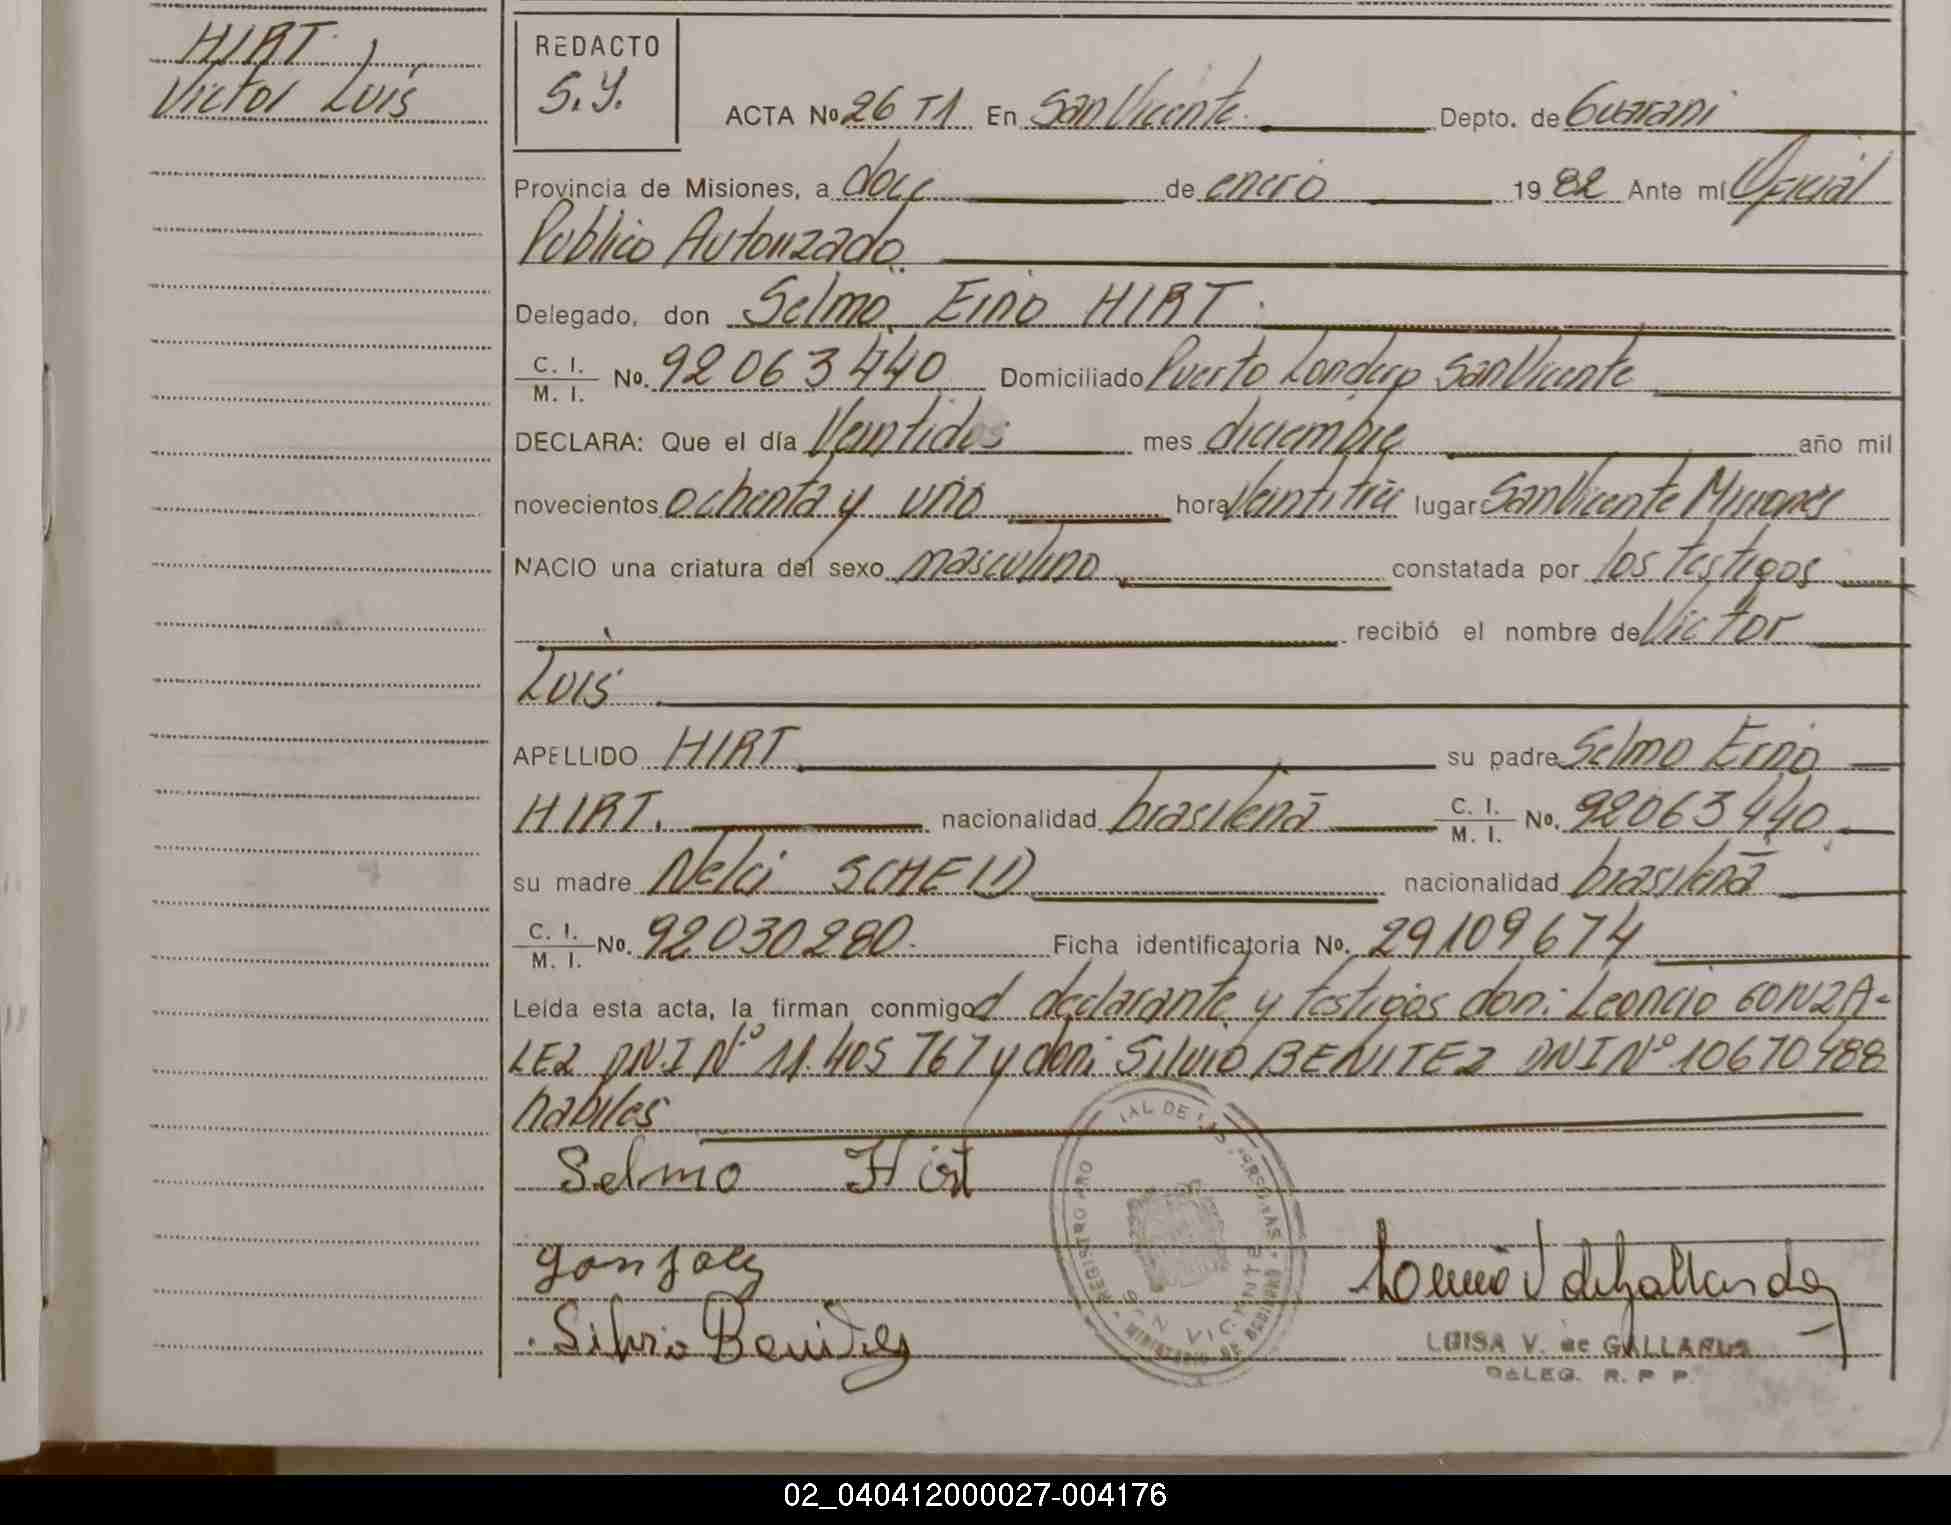 HIRT
Victor Luis
REDACTO
S.Y.
ACTA No. 26 T1 En San Vicente Depto. de Guarani
Provincia de Misiones, a doce de enero 1982 Ante mí Oficial
Publico Autorizado
Delegado, don Selmo Erno HIRT
C. I. / M. I. No. 92063440 Domiciliado Puerto Londero San Vicente
DECLARA: Que el día Veintidos mes diciembre año mil
novecientos ochenta y uno hora Veintitres lugar San Vicente Misiones
NACIO una criatura del sexo masculino constatada por los testigos
recibió el nombre de Victor
Luis
APELLIDO HIRT su padre Selmo Erno
HIRT. nacionalidad brasileña C. I. / M. I. No. 92063440
su madre Nelci SCHEID nacionalidad brasileña
C. I. / M. I. No. 92030280. Ficha identificatoria No. 29109674
Leída esta acta, la firman conmigo el declarante y testigos don: Leoncio GONZA-
LEZ DN.I Nº 11.405767 y don: Silvio BENITEZ DNI Nº 10670488
habiles
Selmo Hirt
Silvio Benitez
SAN VICENTE
LUISA V. de GALLARDO
DELEG. R. P. P.
02_040412000027-004176